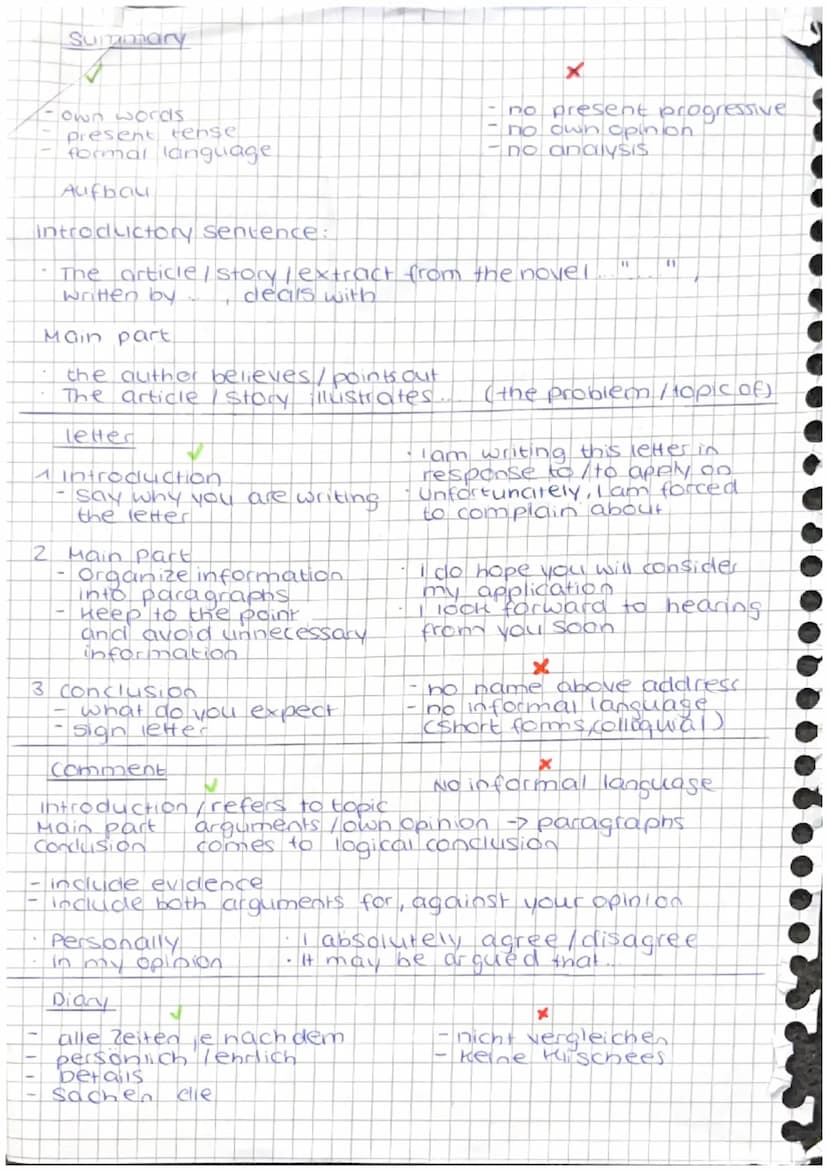 Summary
✓ ✗
- own words
- present tense
- formal language
- no present progressive
- no own opinion
- no analysis
Aufbau
Introductory sentence:
· The article / story / extract from the novel ... "...",
written by ..., deals with
Main part
· the author believes / points out
· The article / story illustrates ... (the problem / topic of)
letter
✓
1 introduction
- say why you are writing
the letter
· I am writing this letter in
response to / to apply on
· Unfortunately, I am forced
to complain about
2 Main part
- Organize information
into paragraphs
- keep to the point
and avoid unnecessary
information
· I do hope you will consider
my application
· I look forward to hearing
from you soon
3 conclusion
- what do you expect
- sign letter
✗
- no name above address
- no informal language
(short forms, colloqwal)
Comment
✓ ✗
No informal language
Introduction / refers to topic
Main part arguments / own opinion -> paragraphs
Conclusion comes to logical conclusion
- include evidence
- include both arguments for, against your opinion
· Personally
· in my opinion
· I absolutely agree / disagree
· It may be argued that ...
Diary
✓ ✗
- alle Zeiten je nachdem
- persönlich / ehrlich
- Details
- Sachen die
- nicht vergleichen
- keine Klischees